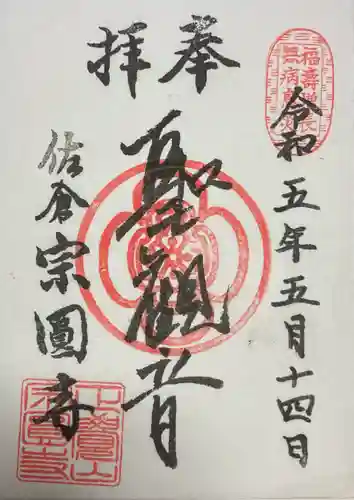 奉拝
福壽増長
無病息災
令和五年五月十四日
聖観音
佐倉宗圓寺